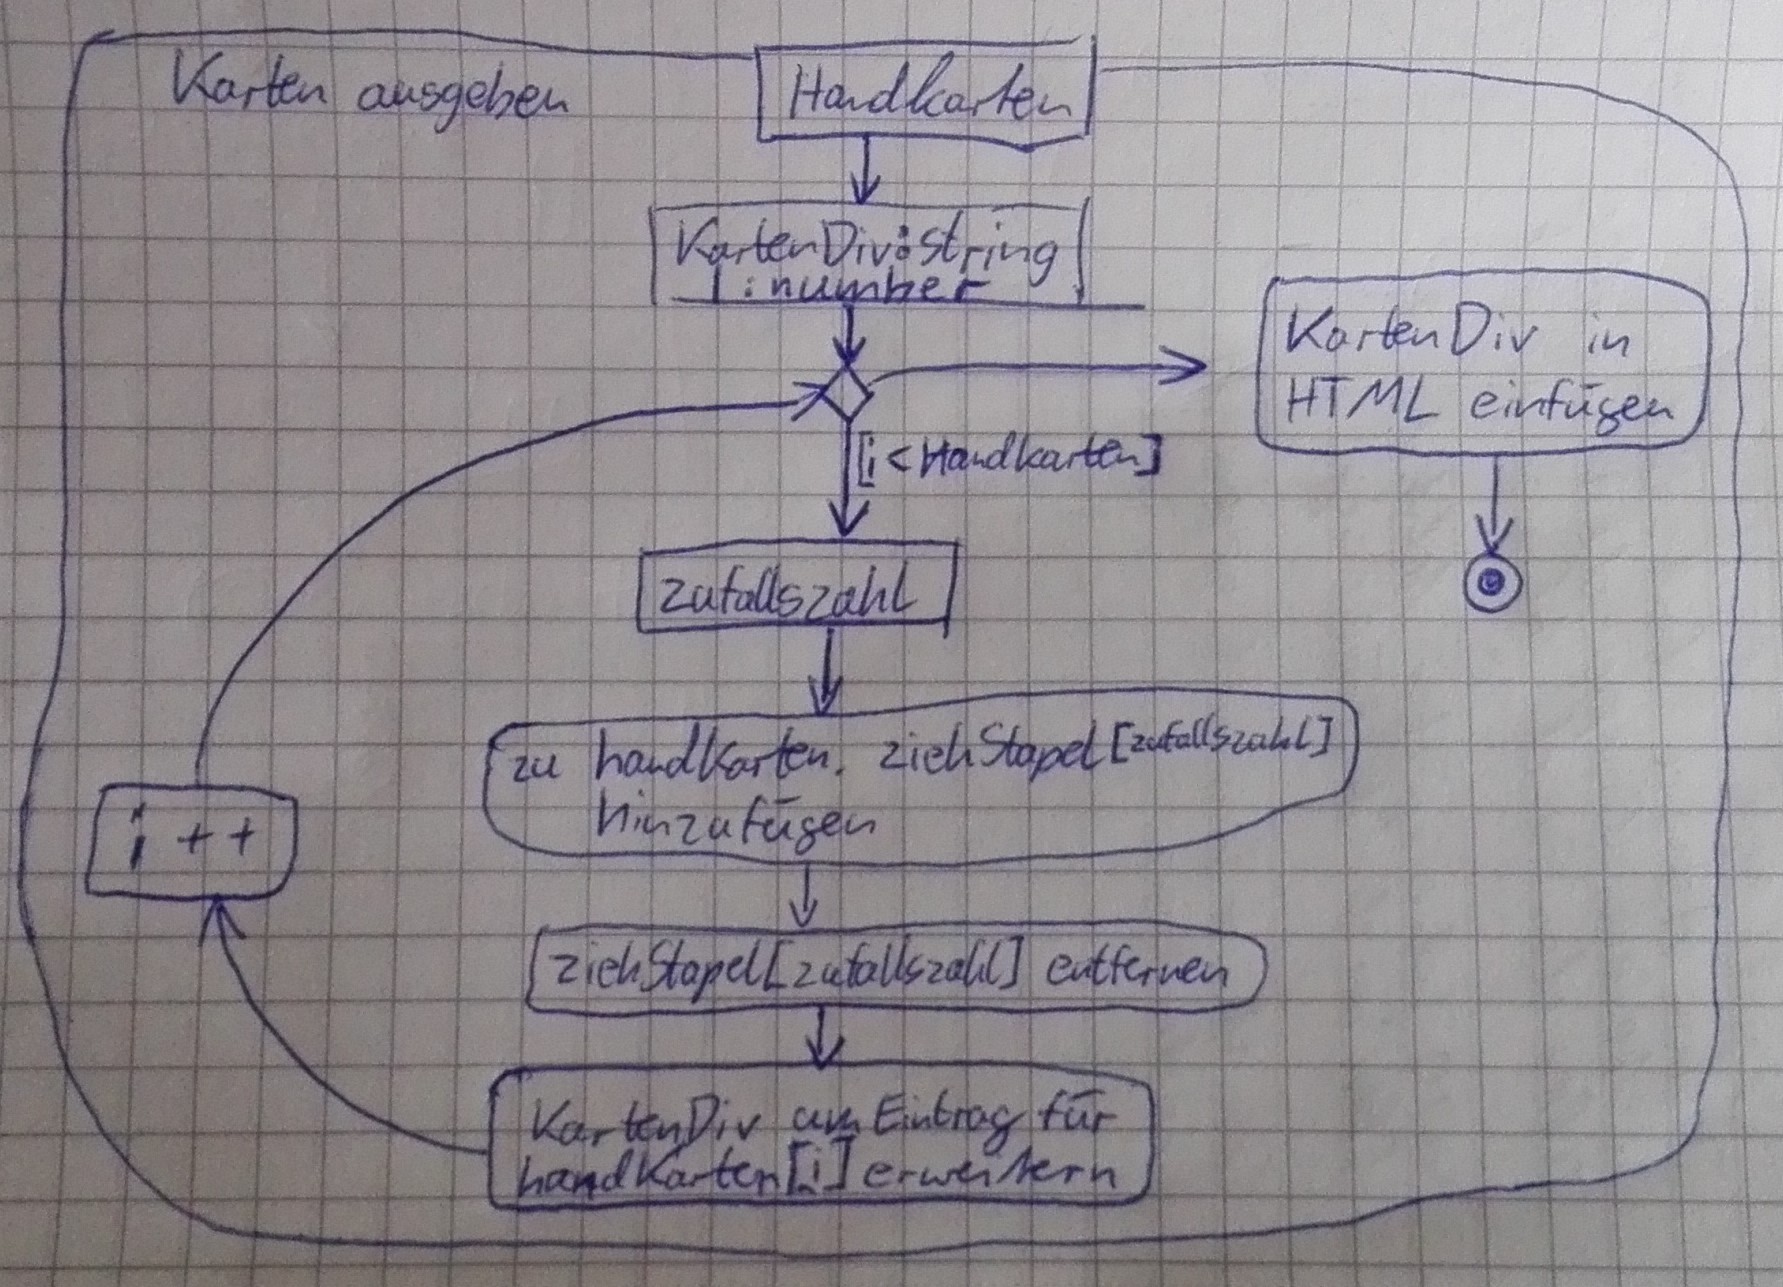 Karten ausgeben
Handkarten
KartenDiv:String
i:number
KartenDiv in
HTML einfügen
[i<Handkarten]
zufallszahl
zu handKarten. ziehStapel[zufallszahl]
hinzufügen
i++
ziehStapel[zufallszahl] entfernen
KartenDiv um Eintrag für
handKarten[i] erweitern